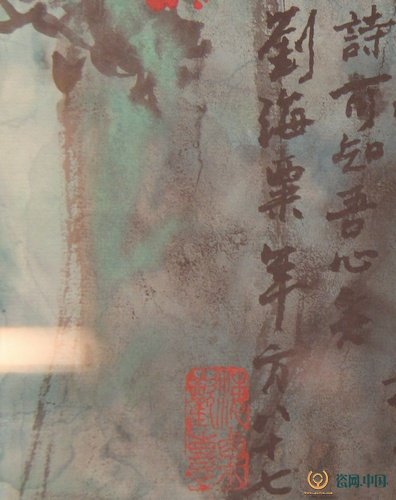 詩可知吾心矣
劉海粟年方八十七
瓷网.中国